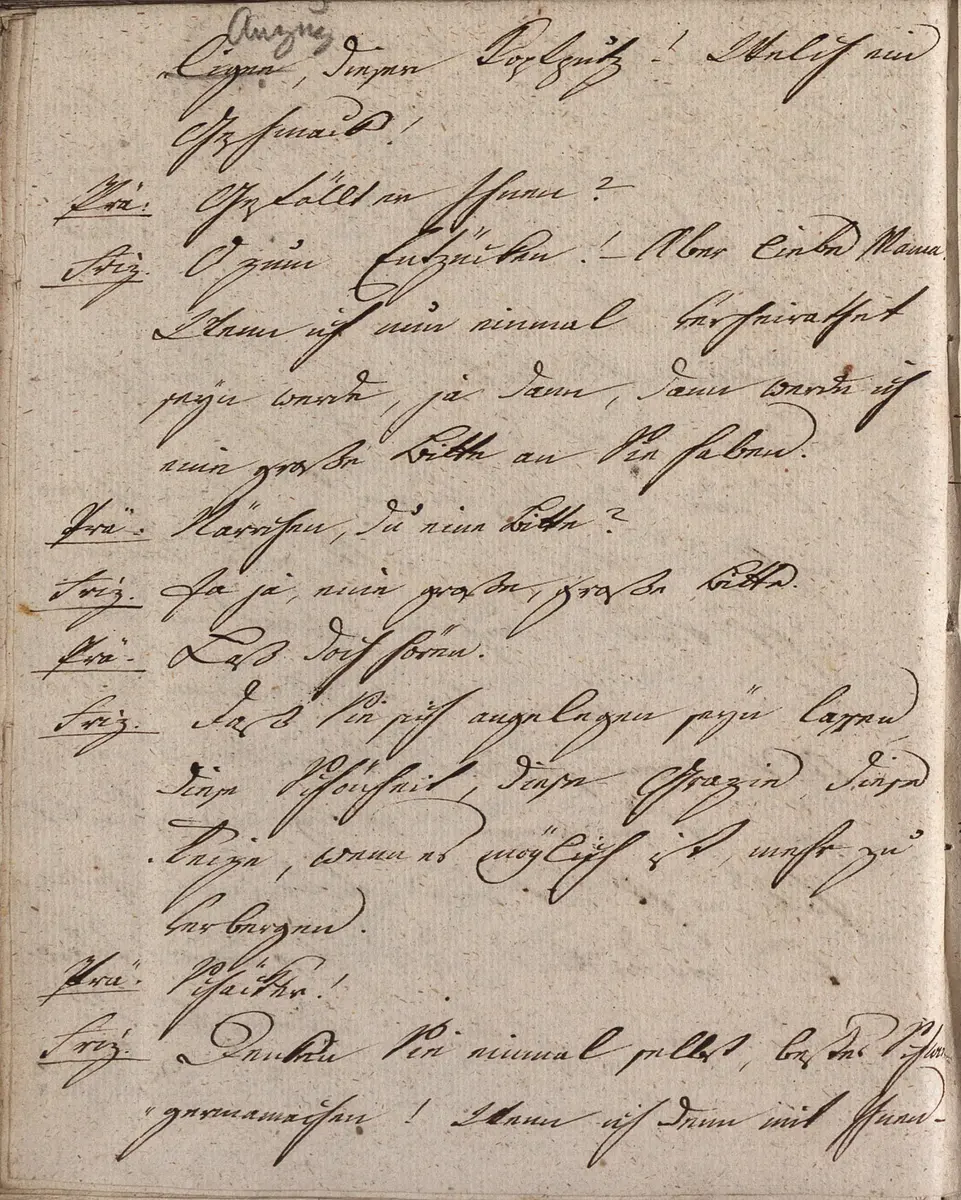 Anzug
ligen, dieser Kopfputz! Welch ein
Geschmack!
Prä: Gefällt er Ihnen?
Friz. O zum Entzücken! – Aber liebe Mama.
Wenn ich nun einmal verheirathet
seyn werde, ja dann, dann werde ich
eine große Bitte an Sie haben.
Prä. Närrchen, du eine Bitte?
Friz. Ja ja, eine große, große Bitte.
Prä. Laß doch hören.
Friz. Daß Sie sich angelegen seyn lassen
diese Schönheit, diese Grazie, diese
Reize, wenn es möglich ist, mehr zu
verbergen.
Prä. Schäcker!
Friz. Denken Sie einmal selbst, bestes Schwie-
germamachen! Wenn ich denn mit Ihnen